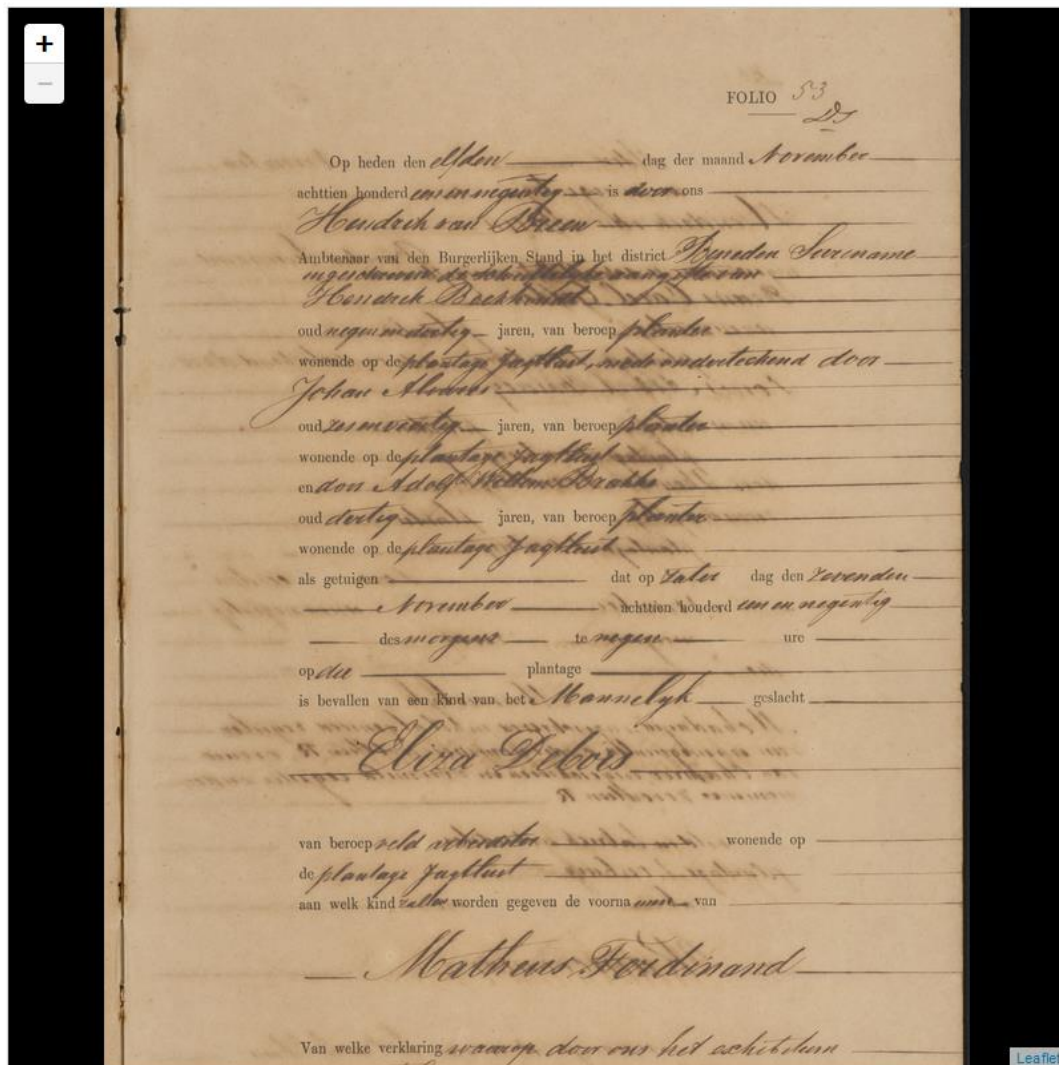 +
−
FOLIO 53
Ds
Op heden den elfden dag der maand November
achttien honderd een en negentig is door ons
Hendrik van Breen
Ambtenaar van den Burgerlijken Stand in het district Beneden Suriname
ingeschreven de schriftelijke aangifte van
Hendrik
oud negen en dertig jaren, van beroep planter
wonende op de plantage Jagtlust, mede onderteekend door
Johan Alvares
oud zes en veertig jaren, van beroep planter
wonende op de plantage Jagtlust
en door Adolf Willem
oud dertig jaren, van beroep planter
wonende op de plantage Jagtlust
als getuigen dat op Zater dag den zevenden
November achttien honderd een en negentig
des morgens te negen ure
op die plantage
is bevallen van een kind van het Mannelyk geslacht
Eliza Debois
van beroep veld arbeidster wonende op
de plantage Jagtlust
aan welk kind zullen worden gegeven de voorna men van
Matheus Ferdinand
Van welke verklaring waarop door ons het exhibitum
Leaflet